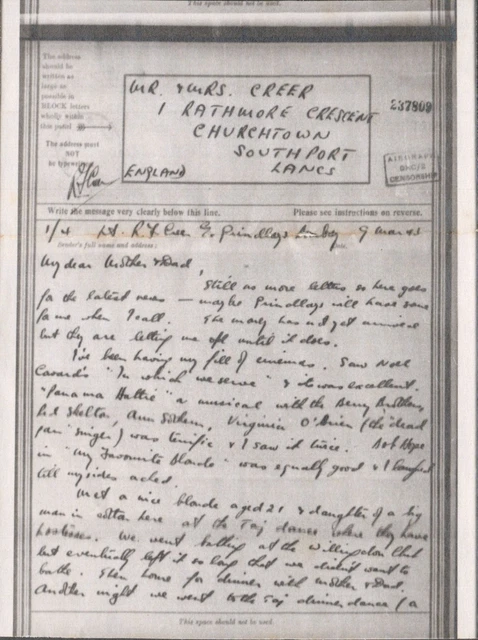 This space should not be used.
The address
should be
written as
large as
possible in
BLOCK letters
wholly within
this panel
The address must
NOT
be typewritten
MR. & MRS. CREER
1 RATHMORE CRESCENT
CHURCHTOWN
SOUTHPORT
ENGLAND LANCS
237809
AIRGRAPH
CENSORSHIP
Write the message very clearly below this line. Please see instructions on reverse.
1/4 Lt. R. F. Creer c/o Grindlays Bombay 9 Mar 43
Sender's full name and address: Date.
My dear Mother & Dad,
Still no more letters so here goes
for the latest news — maybe Grindlays will have some
for me when I call. The money has not yet arrived
but they are letting me off until it does.
I've been having my fill of cinemas. Saw Noel
Coward's "In which we serve" & it was excellent.
"Panama Hattie" a musical with the Berry Brothers
Red Skelton, Ann Sothern, Virginia O'Brien (the dead
pan singer) was terrific & I saw it twice. Bob Hope
in "My Favourite Blonde" was equally good & I laughed
till my sides ached.
Met a nice blonde aged 21 & daughter of a big
man in cotton here at the Taj dance where they have
hostesses. We went bathing at the Willingdon Club
but eventually left it so long that we didn't want to
bathe. Then home for dinner with mother & Dad.
Another night we went to the Taj dinner dance (a
This space should not be used.